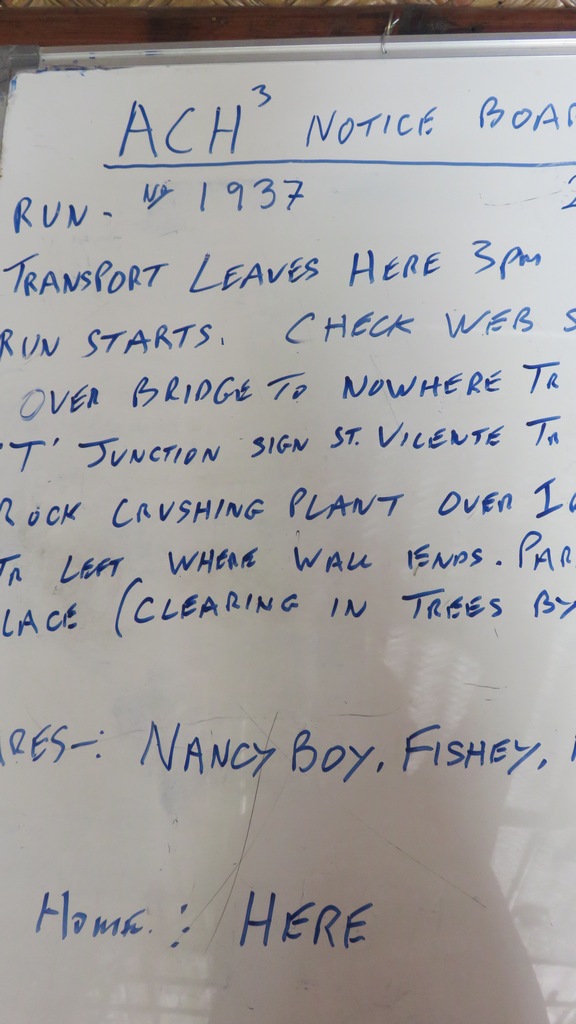 ACH³ NOTICE BOAR
RUN - No 1937 2
TRANSPORT LEAVES HERE 3pm
RUN STARTS. CHECK WEB S
OVER BRIDGE TO NOWHERE TR
'T' JUNCTION SIGN ST. VILENTE TR
ROCK CRUSHING PLANT OVER I
TR LEFT WHERE WALL ENDS. PAR
LACE (CLEARING IN TREES BY
ARES-: NANCY BOY, FISHEY,
HOME: HERE